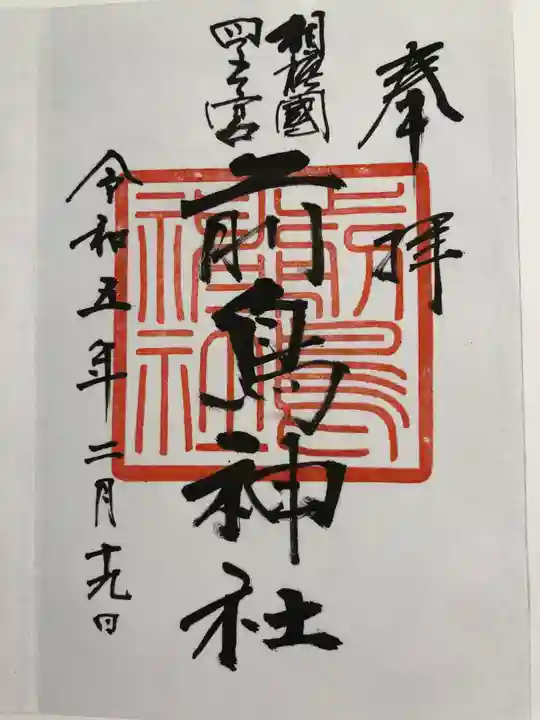 奉拝
相模國
四之宮
前鳥神社
令和五年二月十九日
前鳥
神社